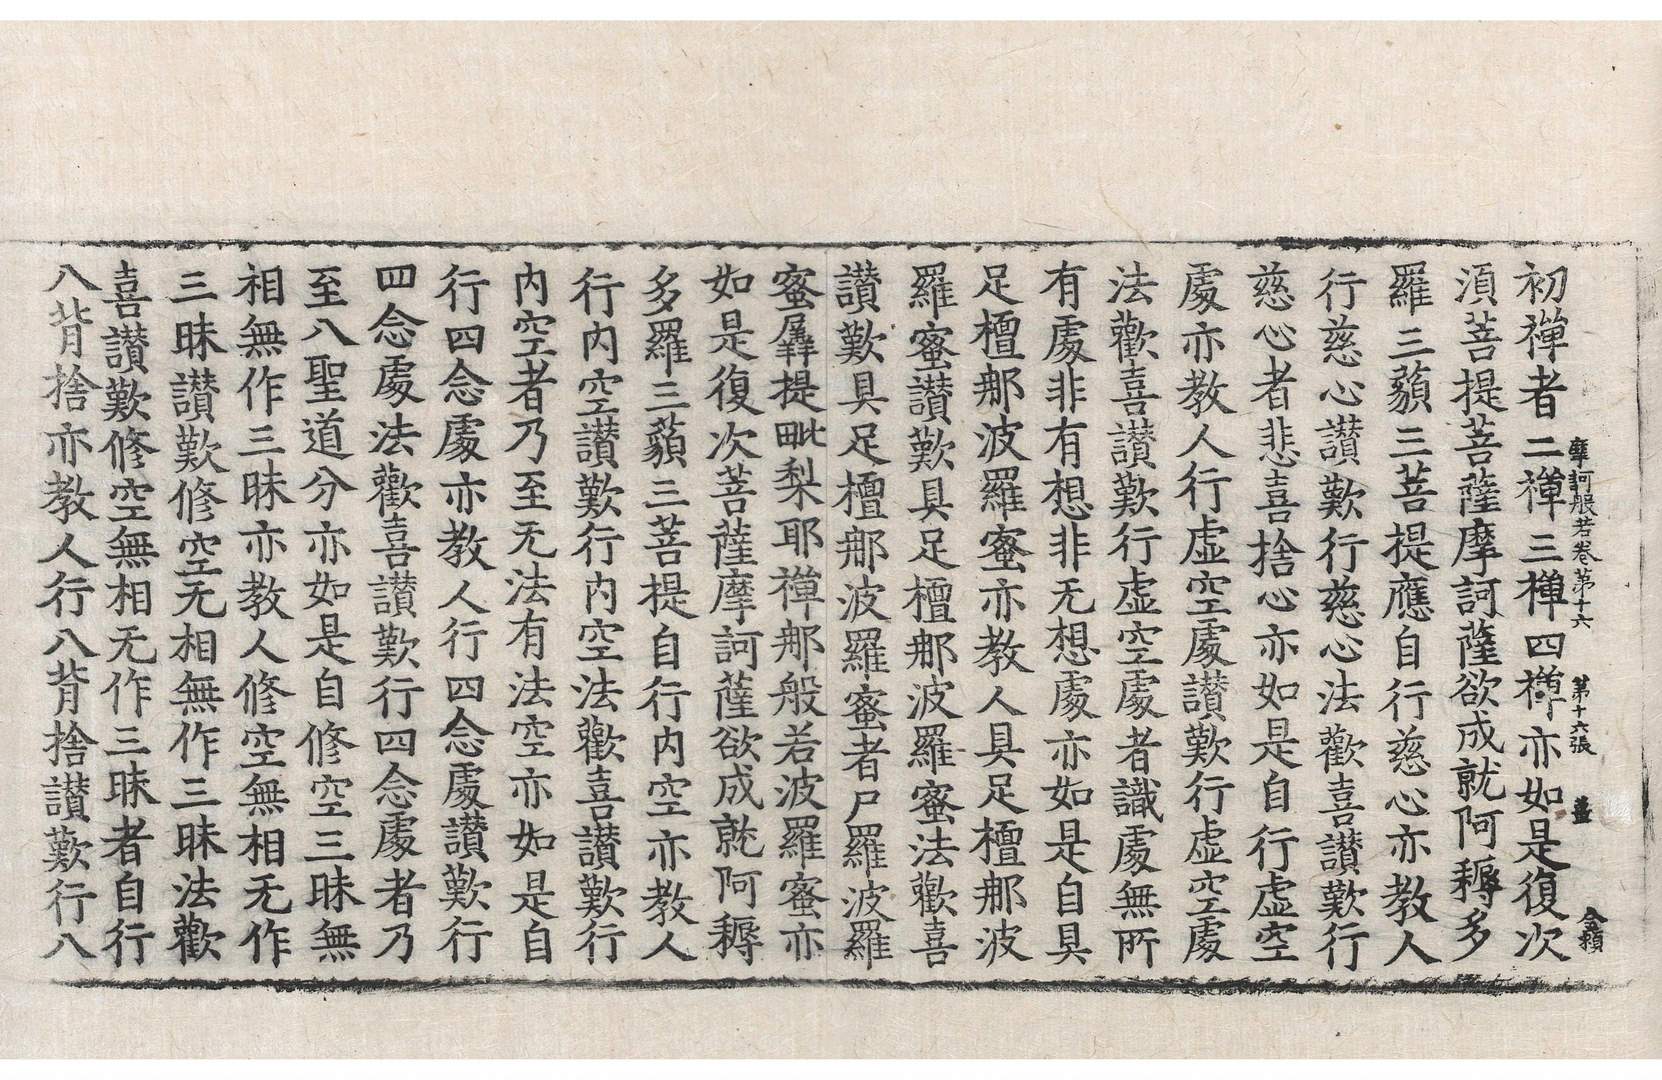 摩訶般若卷第十六 第十六張 薑
初禪者二禪三禪四禪亦如是復次
湏菩提菩薩摩訶薩欲成就阿耨多
羅三藐三菩提應自行慈心亦教人
行慈心讃歎行慈心法歡喜讃歎行
慈心者悲喜捨心亦如是自行虛空
處亦教人行虛空處讃歎行虛空處
法歡喜讃歎行虛空處者識處無所
有處非有想非无想處亦如是自具
足檀那波羅蜜亦教人具足檀那波
羅蜜讃歎具足檀那波羅蜜法歡喜
讃歎具足檀那波羅蜜者尸羅波羅
蜜羼提毗梨耶禪那般若波羅蜜亦
如是復次菩薩摩訶薩欲成就阿耨
多羅三藐三菩提自行内空亦教人
行内空讃歎行内空法歡喜讃歎行
内空者乃至无法有法空亦如是自
行四念處亦教人行四念處讃歎行
四念處法歡喜讃歎行四念處者乃
至八聖道分亦如是自修空三昧無
相無作三昧亦教人修空無相无作
三昧讃歎修空无相無作三昧法歡
喜讃歎修空無相无作三昧者自行
八背捨亦教人行八背捨讃歎行八